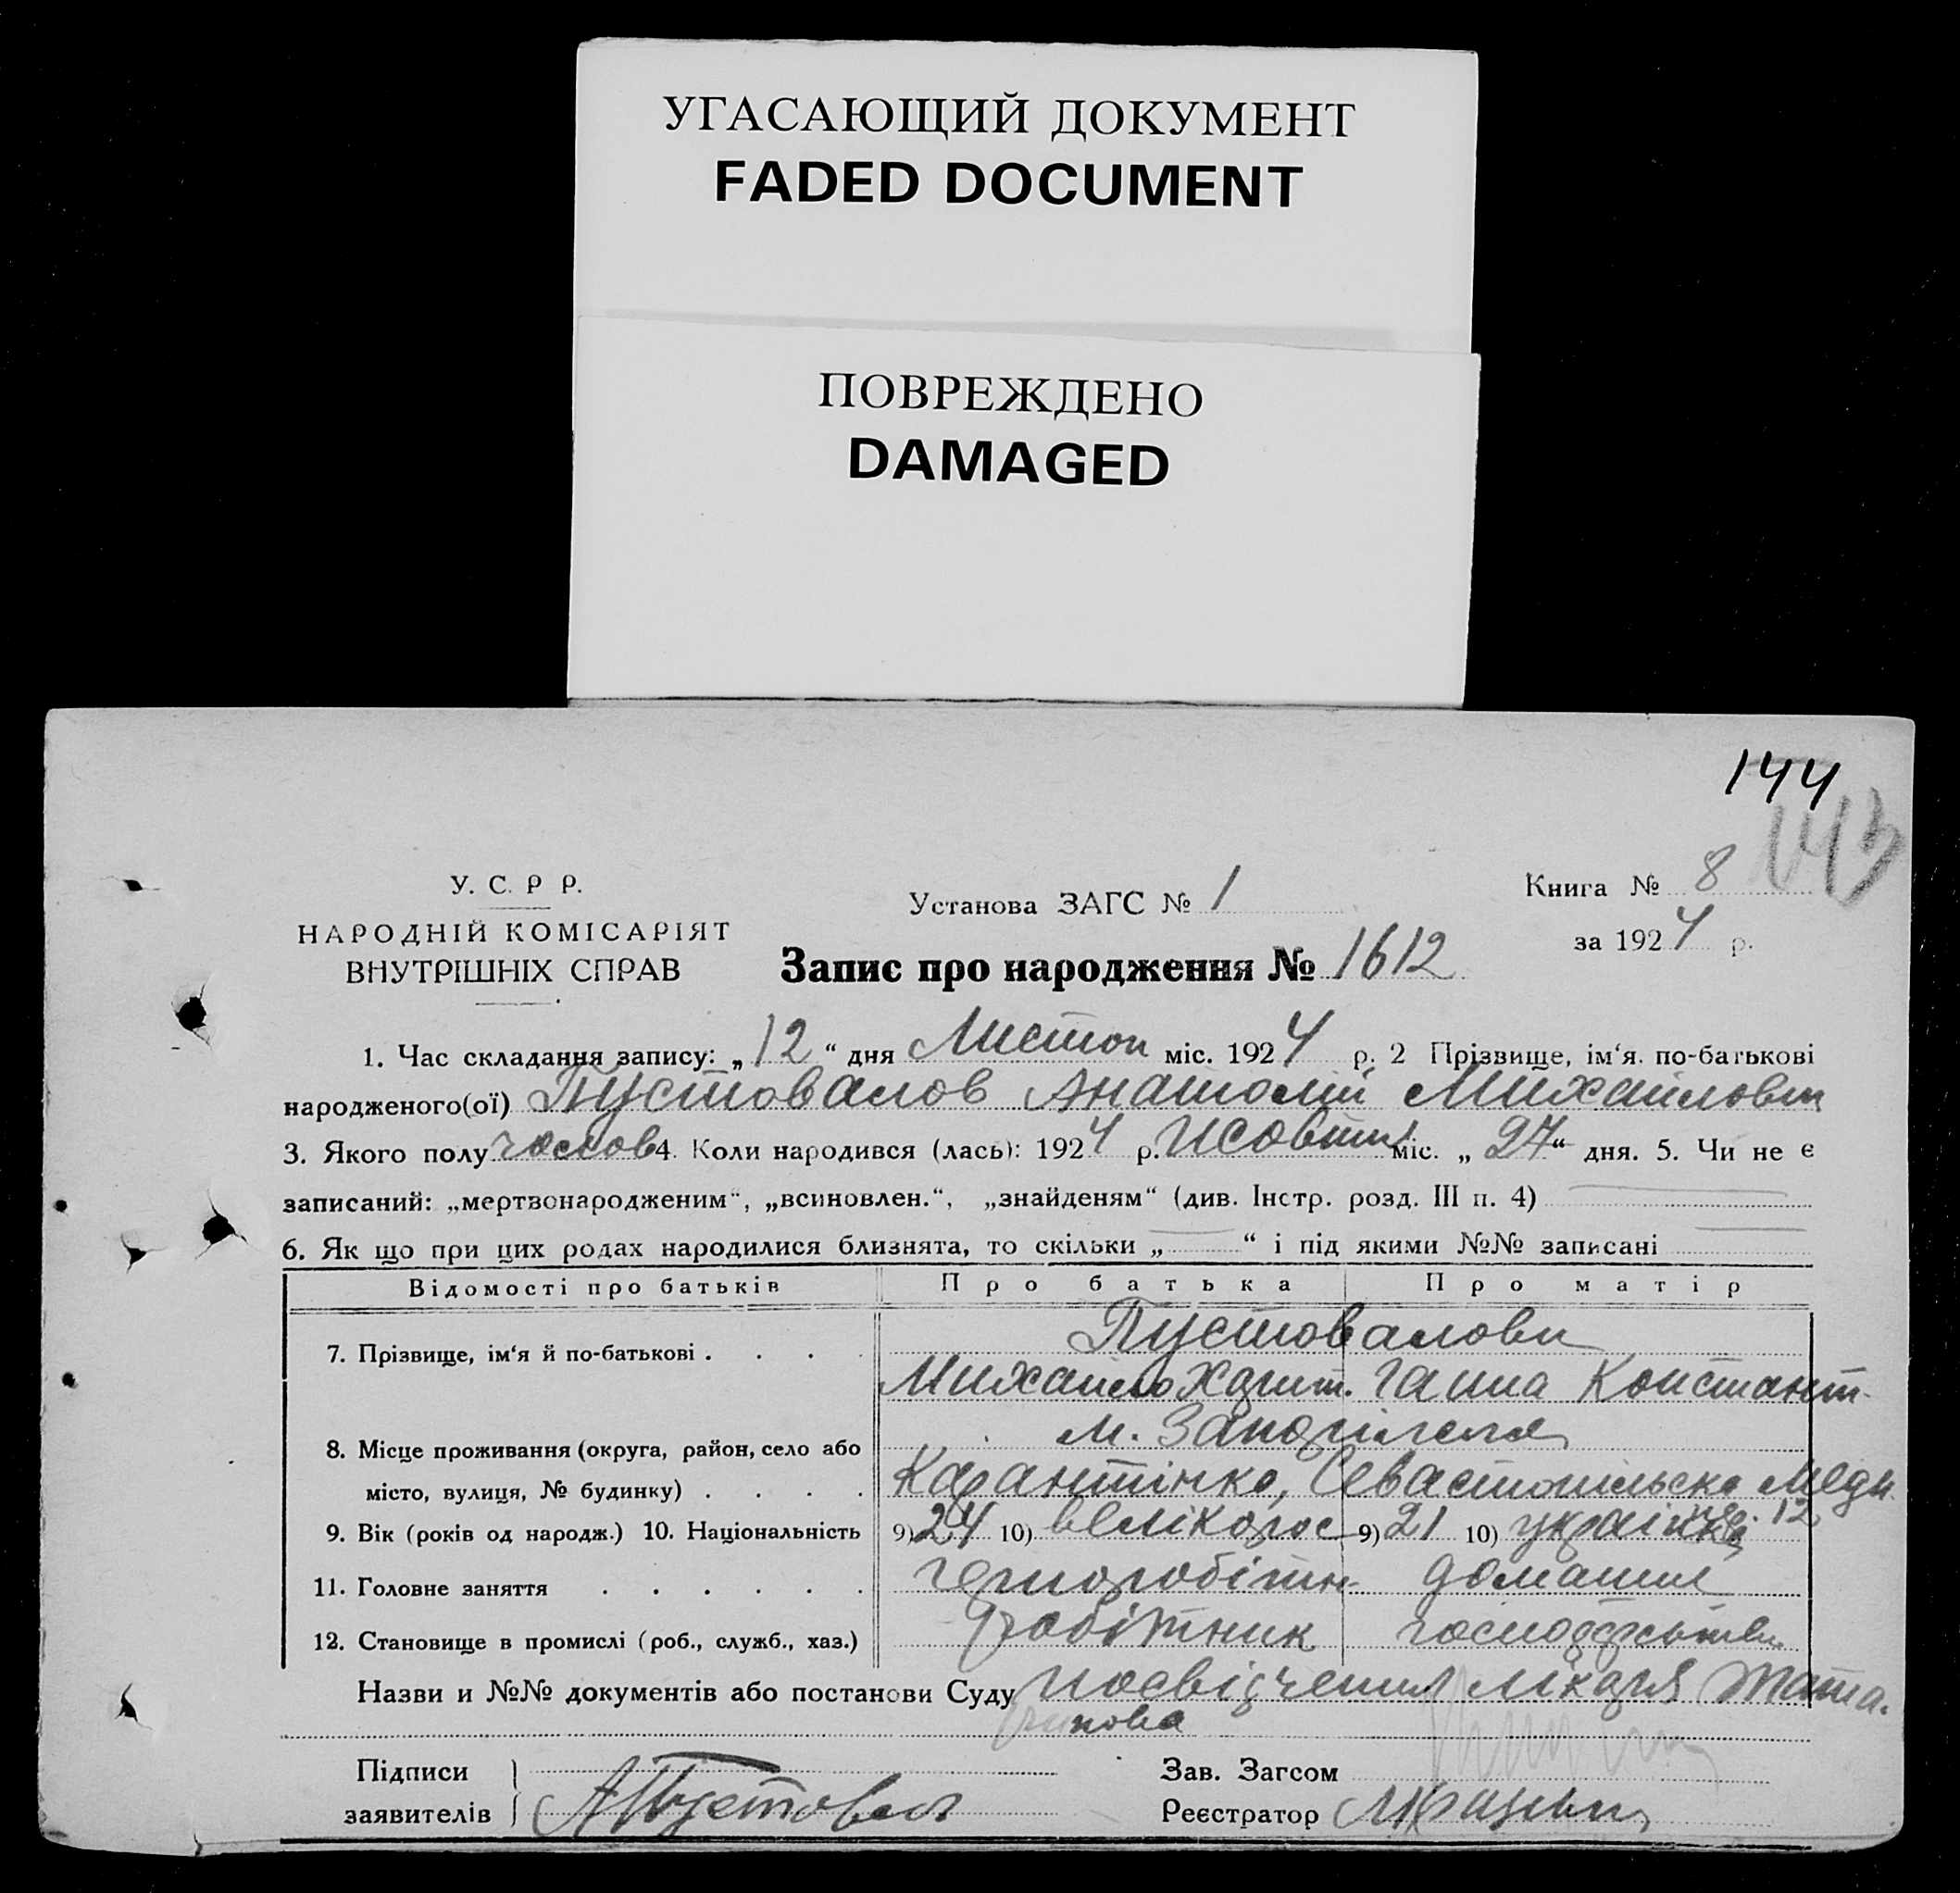 УГАСАЮЩИЙ ДОКУМЕНТ
FADED DOCUMENT
ПОВРЕЖДЕНО
DAMAGED
144
143
У. С. Р Р.
НАРОДНІЙ КОМІСАРІЯТ
ВНУТРІШНІХ СПРАВ
Установа ЗАГС № 1
Книга № 8
за 1924 р.
Запис про народження № 1612
1. Час складання запису: „12“ дня Листоп міс. 1924 р. 2 Прізвище, ім‘я. по-батькові
народженого(ої) Пустовалов Анатолій Михайлович
3. Якого полу 4. Коли народився (лась): 1924 р. Жовтня міс. „27“ дня. 5. Чи не є
записаний: „мертвонародженим“, „всиновлен.“, „знайденям“ (див. Інстр. розд. III п. 4)
6. Як що при цих родах народилися близнята, то скільки „ “ і під якими №№ записані
Відомості про батьків Про батька Про матір
7. Прізвище, ім‘я й по-батькові . . . . Пустовалови
Михайло Харит. Ганна Констант.
8. Місце проживання (округа, район, село або м. Запоріжжя
місто, вулиця, № будинку) . . . . Карантінка, Севастопільска
9. Вік (років од народж.) 10. Національність 9) 24 10) велікорос 9) 21 10) українка 12
11. Головне заняття . . . . . . чорноробітн. домашнє
12. Становище в промислі (роб., служб., хаз.) робітник господарство
Назви и №№ документів або постанови Суду посвідчення лікаря
Підписи
заявителів
АПустовал
Зав. Загсом
Реєстратор